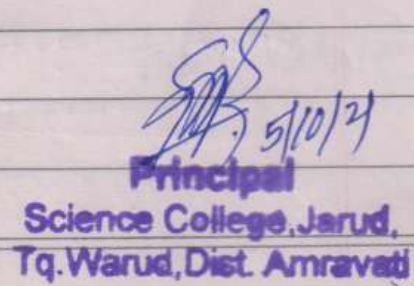 5/10/21
Principal
Science College, Jarud,
Tq. Warud, Dist. Amravati